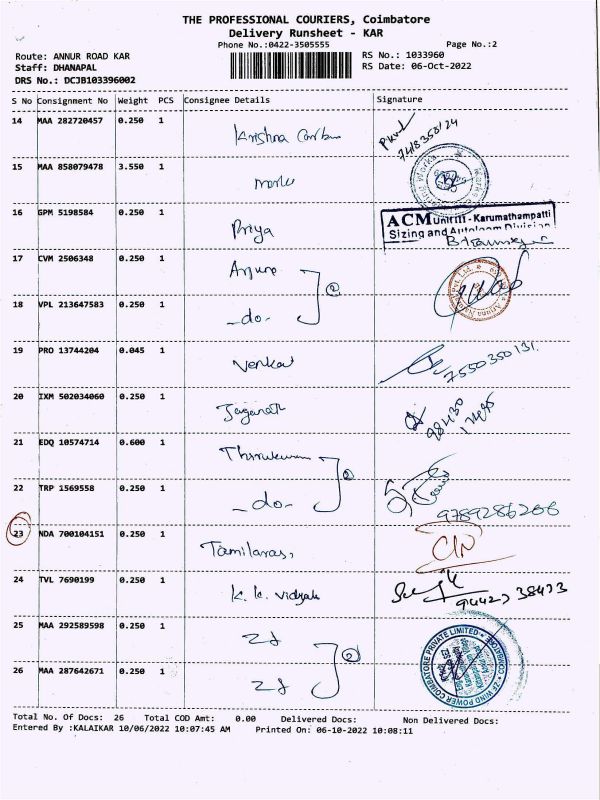 THE PROFESSIONAL COURIERS, Coimbatore
Delivery Runsheet - KAR
Phone No.:0422-3505555 Page No.:2
Route: ANNUR ROAD KAR RS No.: 1033960
Staff: DHANAPAL RS Date: 06-Oct-2022
DRS No.: DCJB103396002
S No Consignment No Weight PCS Consignee Details Signature
14 MAA 282720457 0.250 1 Krishna
7418358124
15 MAA 858079478 3.550 1
16 GPM 5198584 0.250 1 Priya
ACM Unit III - Karumathampatti
Sizing and Autoloom Division
17 CVM 2506348 0.250 1
2
18 VPL 213647583 0.250 1 -do-
19 PRO 13744204 0.045 1 Venkat 7550350131
20 IXM 502034060 0.250 1 Jaganath
98430
21 EDQ 10574714 0.600 1
2
22 TRP 1569558 0.250 1 -do-
9789286266
23 NDA 700104151 0.250 1 Tamilaras,
24 TVL 7690199 0.250 1 K. K. Vidyal
94427 38473
25 MAA 292589598 0.250 1 ZF
2
26 MAA 287642671 0.250 1 ZF
ZF WIND POWER COIMBATORE PRIVATE LIMITED
Total No. Of Docs: 26 Total COD Amt: 0.00 Delivered Docs: Non Delivered Docs:
Entered By :KALAIKAR 10/06/2022 10:07:45 AM Printed On: 06-10-2022 10:08:11